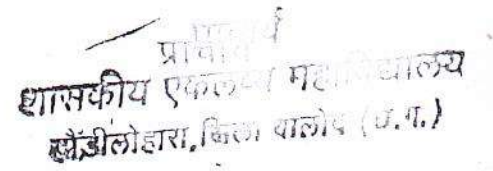 प्राचार्य
शासकीय एकलव्य महाविद्यालय
डौंडीलोहारा, जिला बालोद (छ.ग.)